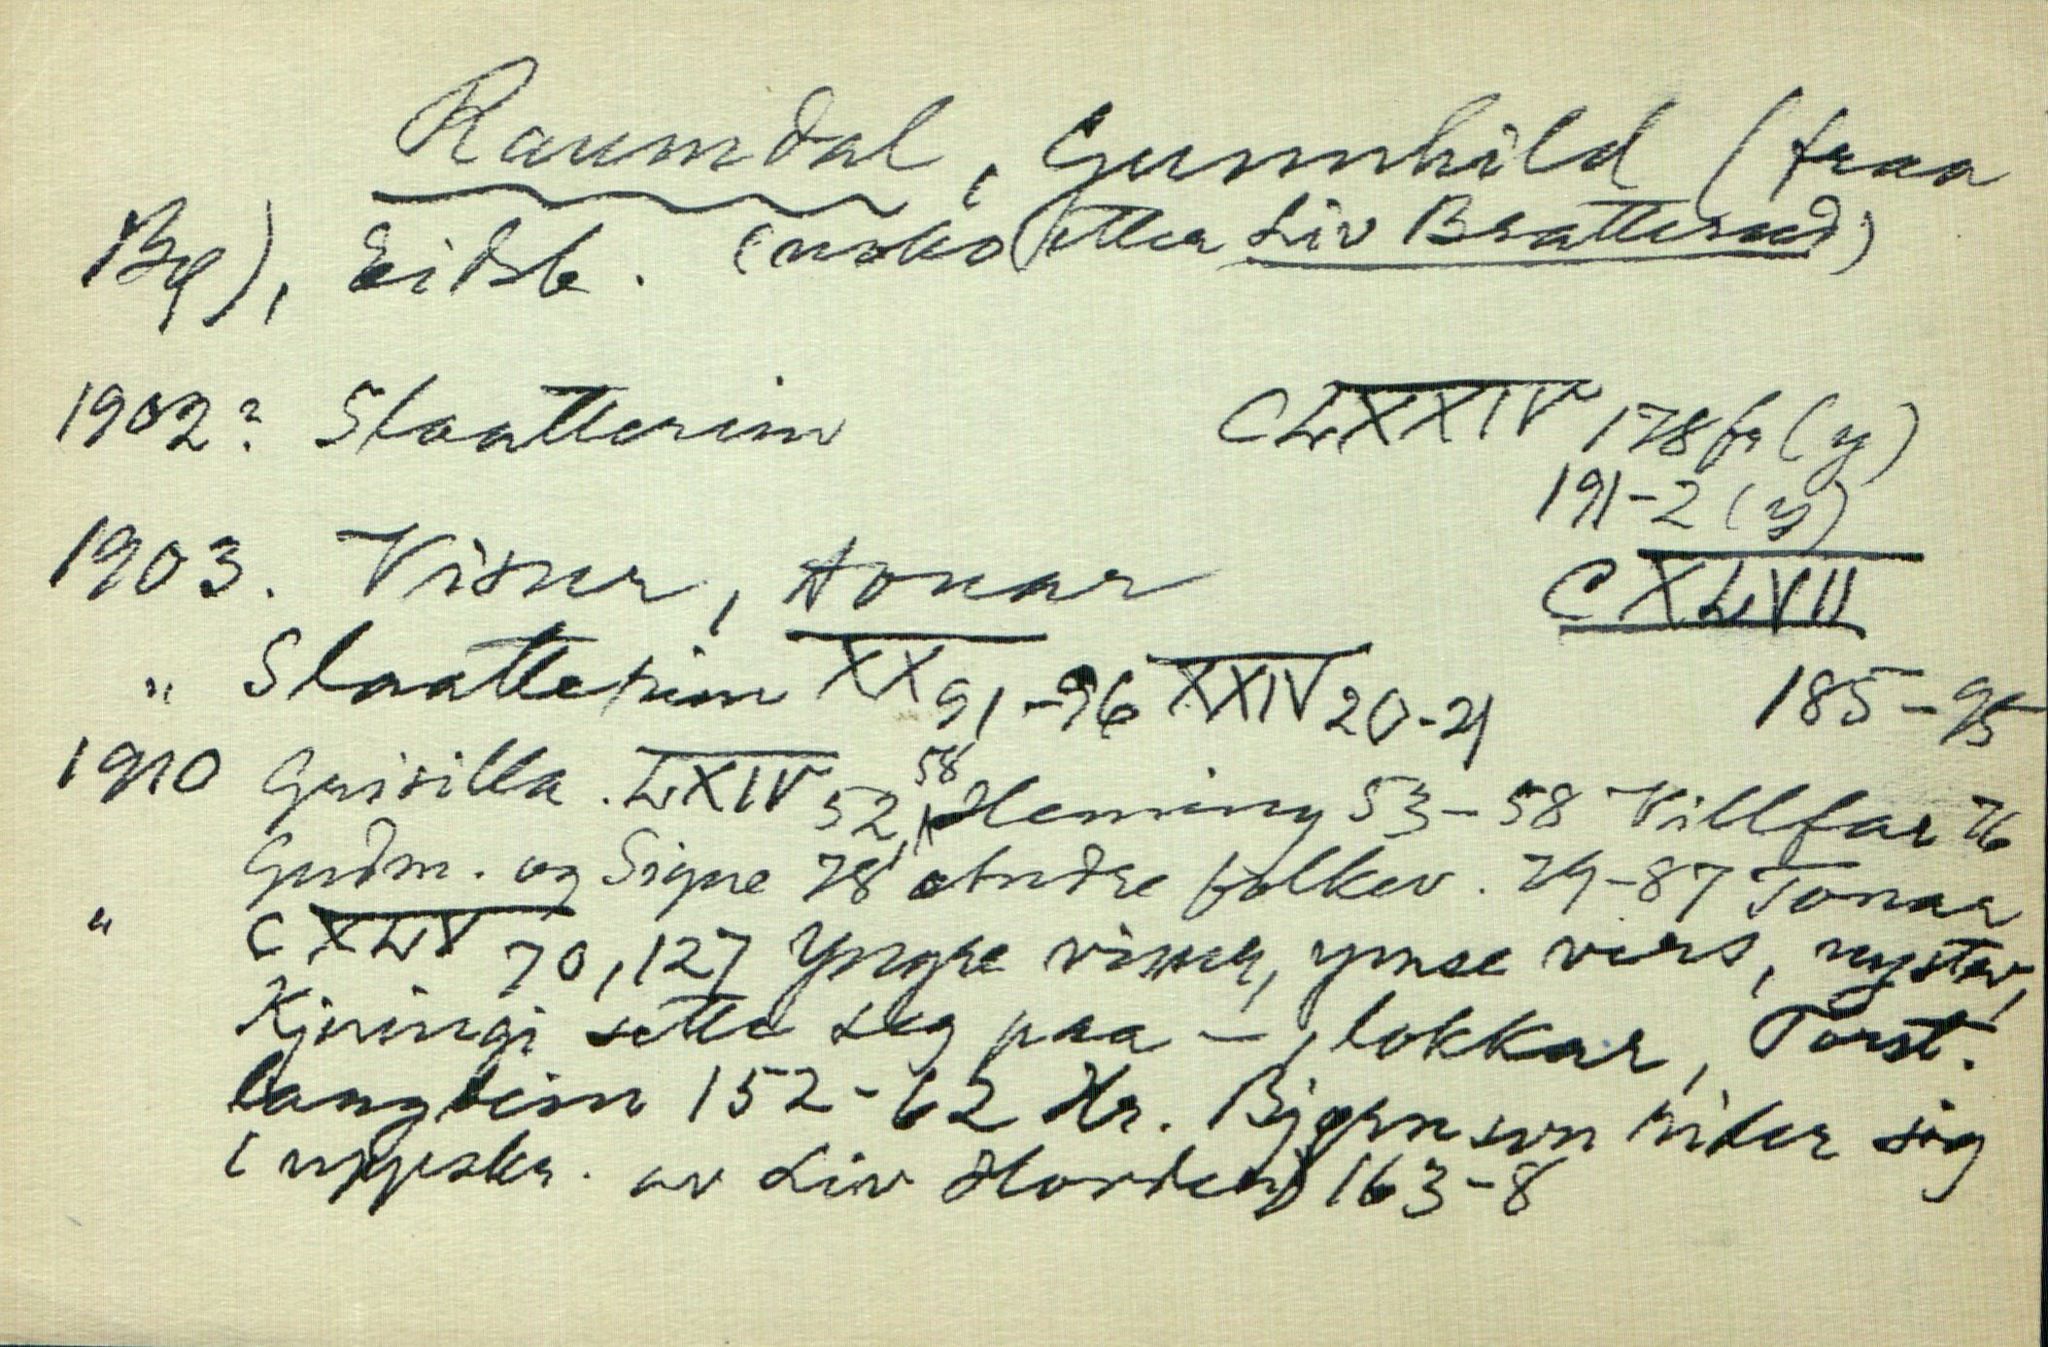 Raumdal, Gunnhild (fraa
By), Eidsb. (noko etter Liv Bratterud)
1902? Slaatterim CLXXIV 178fr (y)
191-2 (y)
1903. Visur, tonar CXLVII
" Slaatterim XX 91-96 XXIV 20-21 185-95
1910 Grisilla. LXIV 52, 58 Heming 53-58 Villfar 76
Gudm. og Signe 78 andre folkev. 79-87 Tonar
" CXLV 70, 127 Yngre viser, ymse vers, nystev,
Kjeringi sette seg paa -, lokkar, Torst.
langbein 152-62 Hr. Bjørnson rider sig
(uppskr. av Liv 163-8